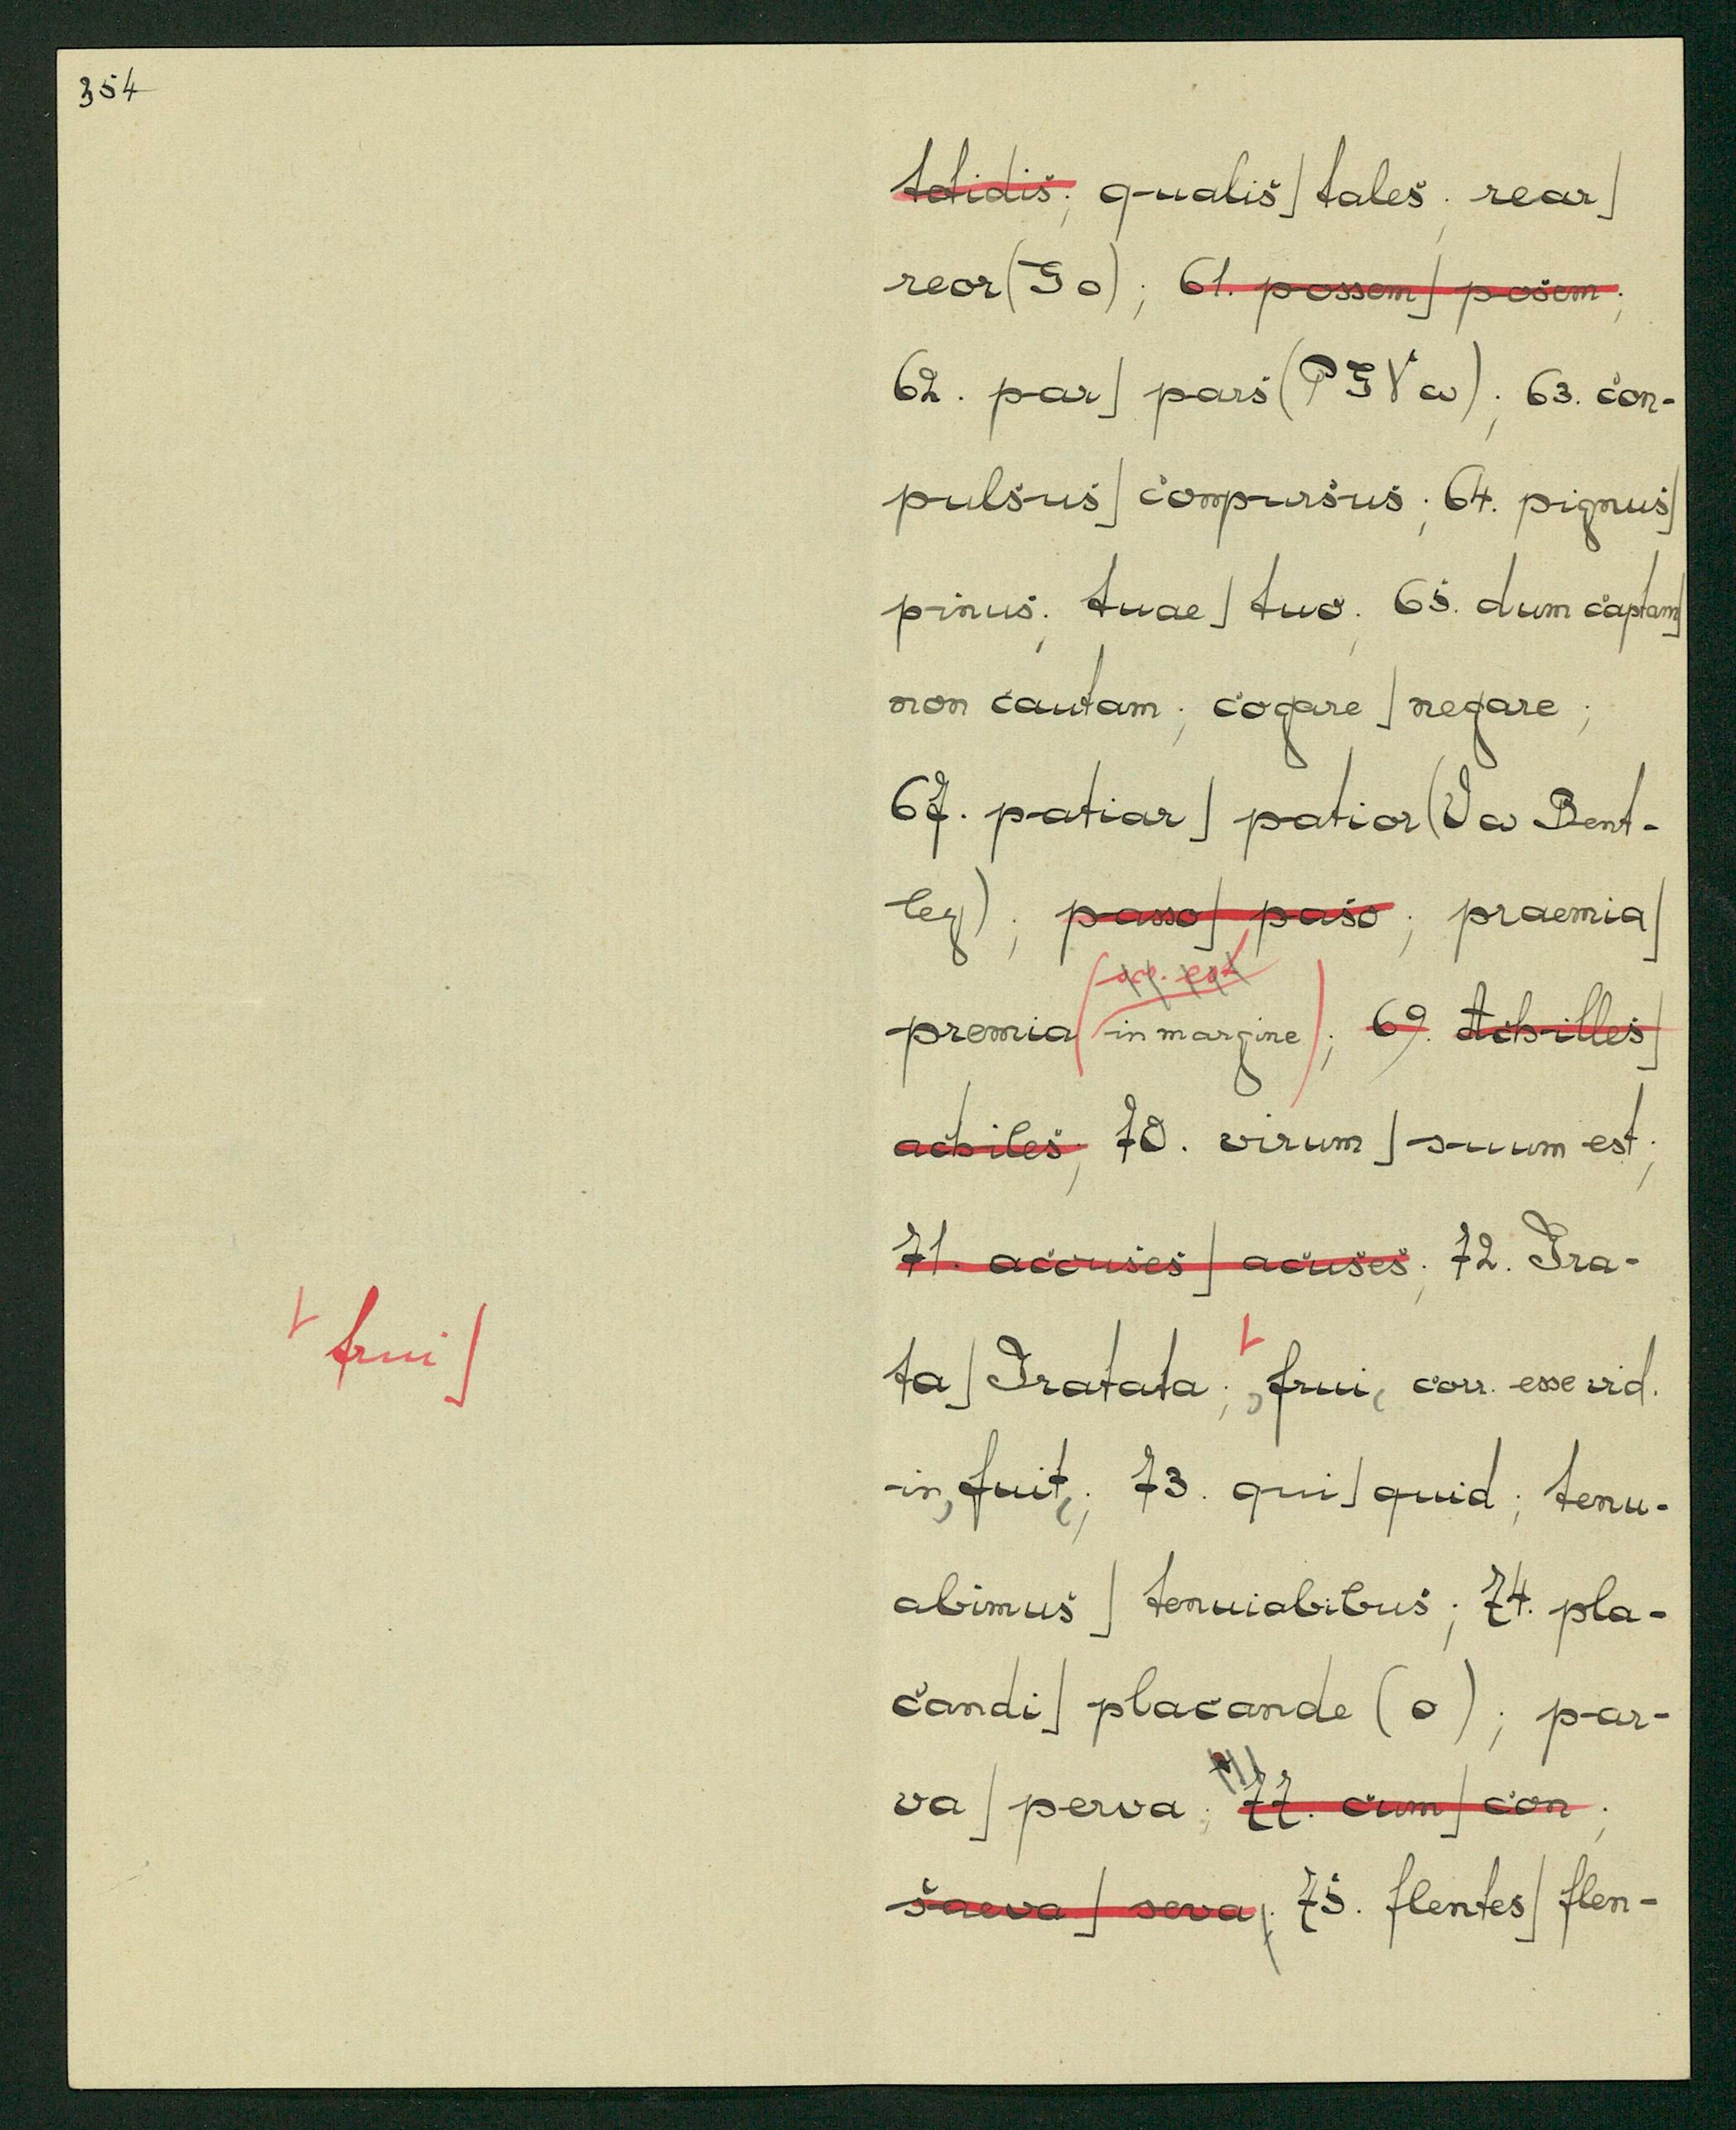 354
totidis; qualis] tales; rear]
reor (G o); 61. possem] posem;
62. par] pars (P G V ω); 63. con-
pulsus] conpursus; 64. pignus]
pinus; tuae] tuo; 65. dum captam]
non cautam; cogare] negare;
67. patiar] patior (V ω Bent-
ley); passo] paso; praemia]
scr. est
premia (in margine); 69. Achilles]
achiles; 70. virum] suum est;
71. accuses] acuses; 72. Ira-
frui]
ta] Iratata; ,frui, corr. esse vid.
in ,fuit,; 73. qui] quid; tenu-
abimus] tenuiabibus; 74. pla-
candi] placande (o); par-
va] perva; 77. cum] con;
saeva] seva; 75. flentes] flen-